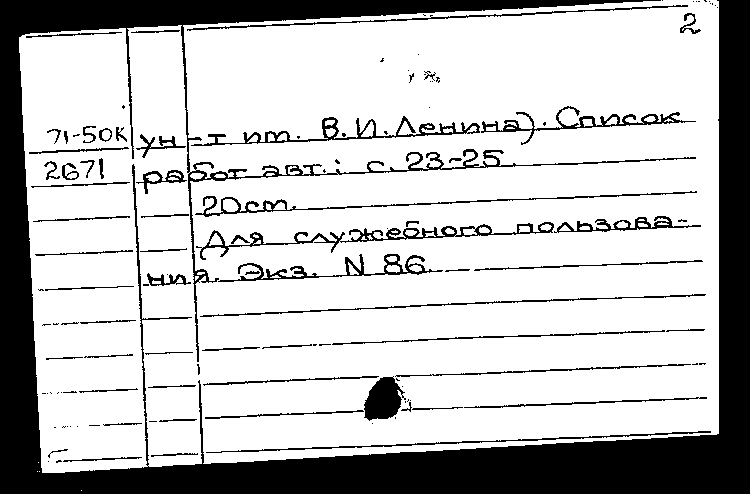 2
71-50К ун-т им. В.И.Ленина). Список
2671 работ авт.: с. 23-25.
20см.
Для служебного пользова-
ния. Экз. N 86